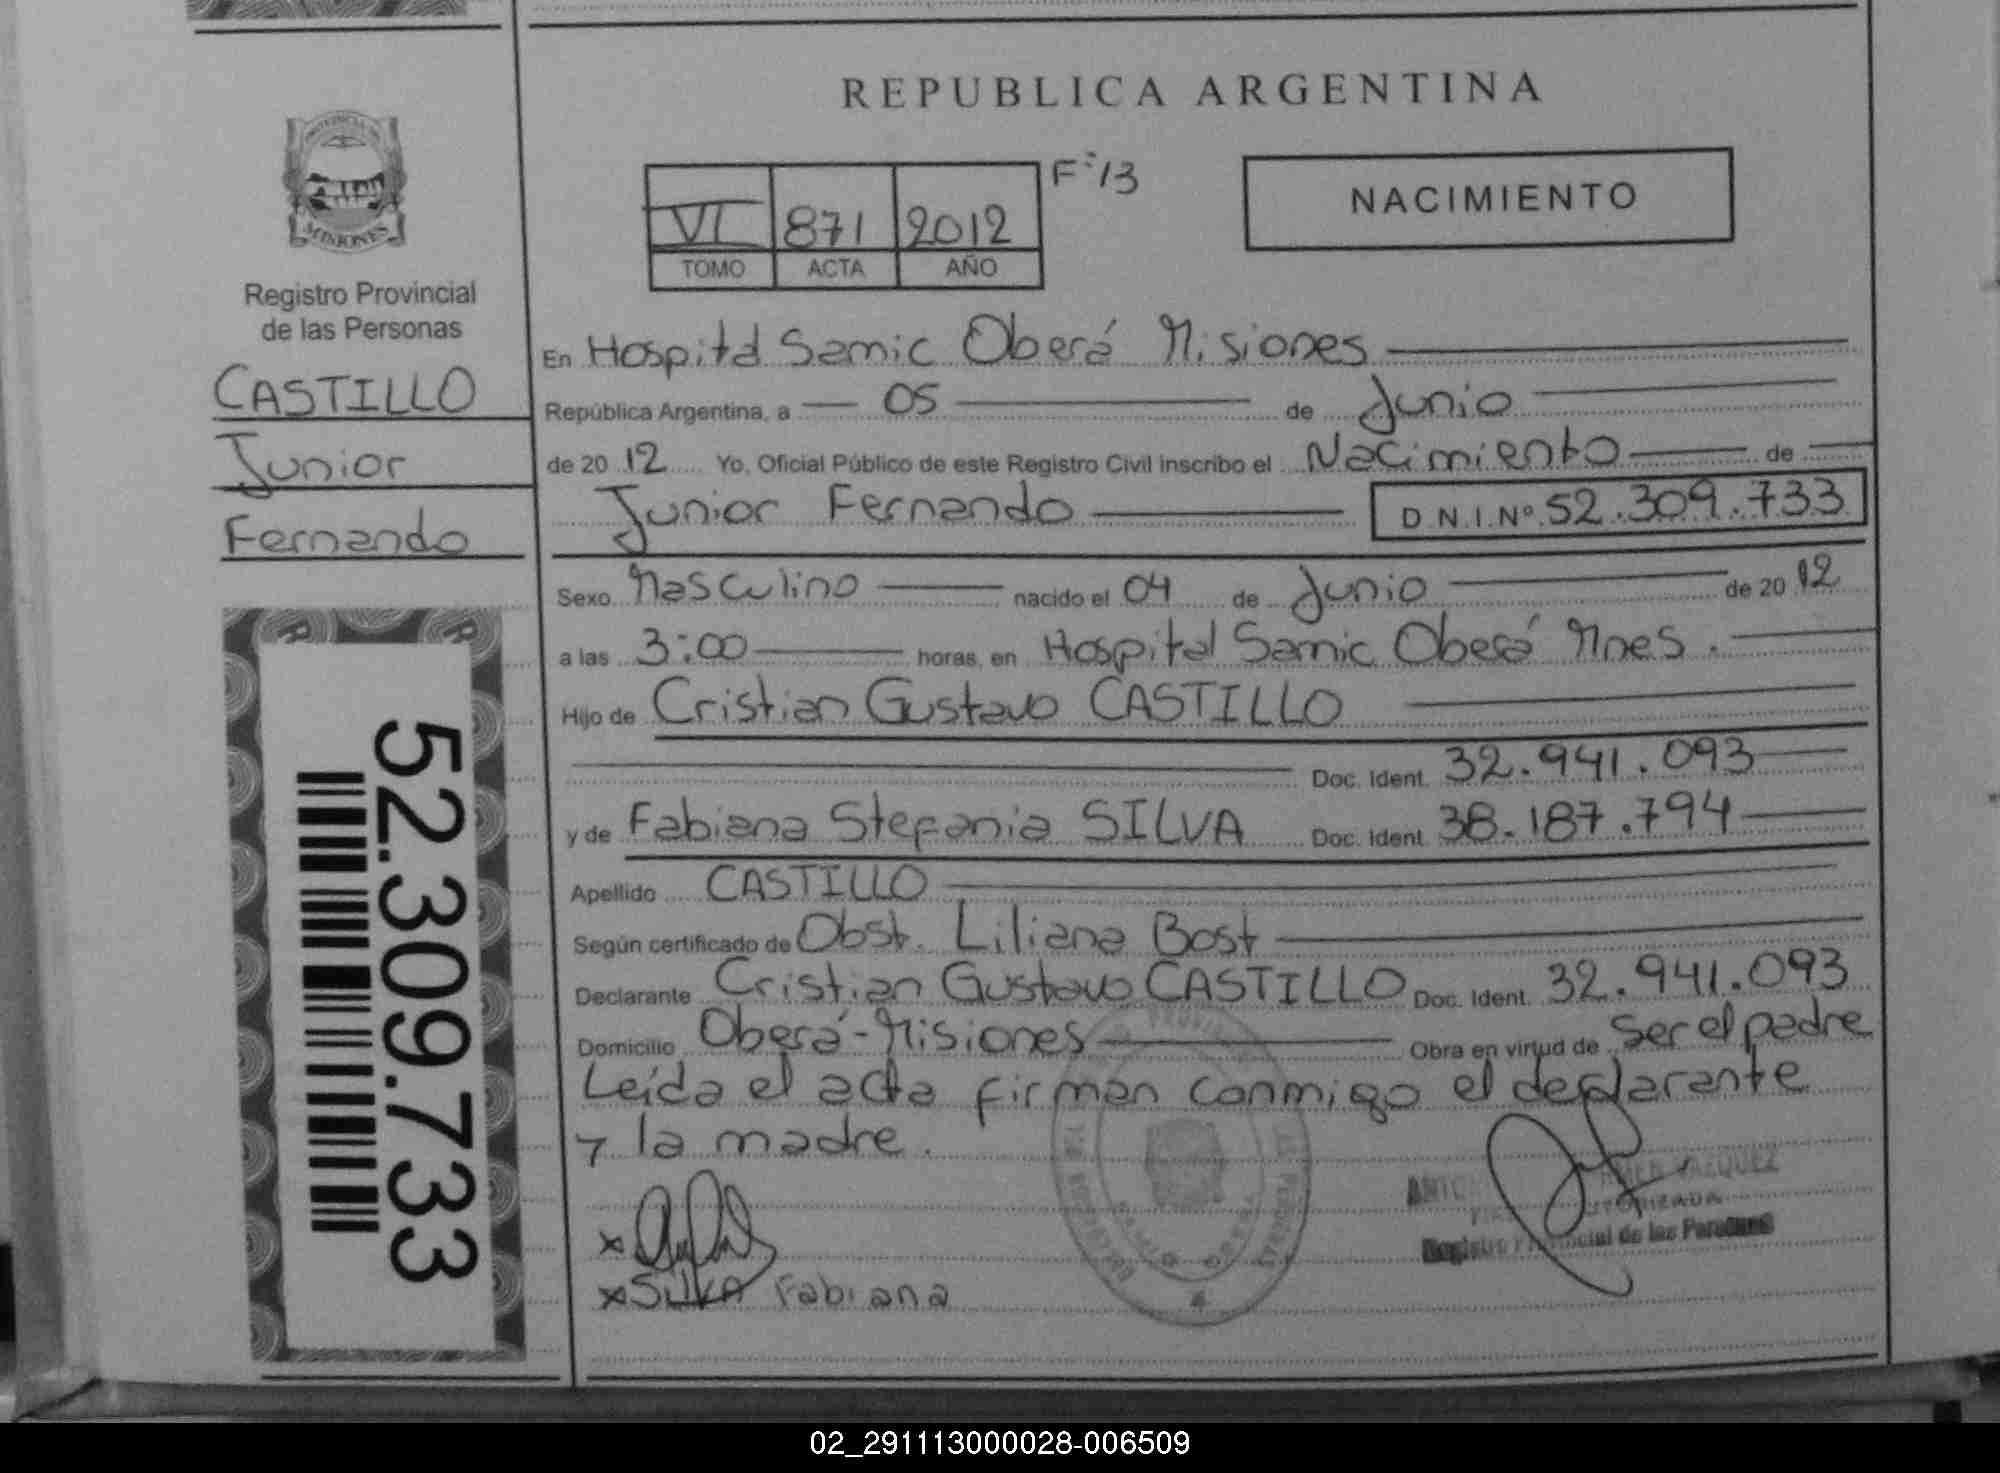 REPUBLICA ARGENTINA
PROVINCIA DE
MISIONES
Registro Provincial
de las Personas
CASTILLO
Junior
Fernando
52.309.733
VI 871 2012 F:13
TOMO ACTA AÑO
NACIMIENTO
En Hospital Samic Oberá Misiones
República Argentina, a 05 de Junio
de 20 12 Yo, Oficial Público de este Registro Civil inscribo el Nacimiento de
Junior Fernando D.N.I.Nº 52.309.733
Sexo Masculino nacido el 04 de Junio de 20 12
a las 3:00 horas, en Hospital Samic Oberá Mnes.
Hijo de Cristian Gustavo CASTILLO
Doc. Ident. 32.941.093
y de Fabiana Stefania SILVA Doc. Ident. 38.187.794
Apellido CASTILLO
Según certificado de Obst. Liliana Bost
Declarante Cristian Gustavo CASTILLO Doc. Ident. 32.941.093
Domicilio Oberá-Misiones Obra en virtud de Ser el padre
Leída el acta firman conmigo el declarante
y la madre.
VAZQUEZ
Registro Provincial de las Personas
x
x SILVA Fabiana
02_291113000028-006509